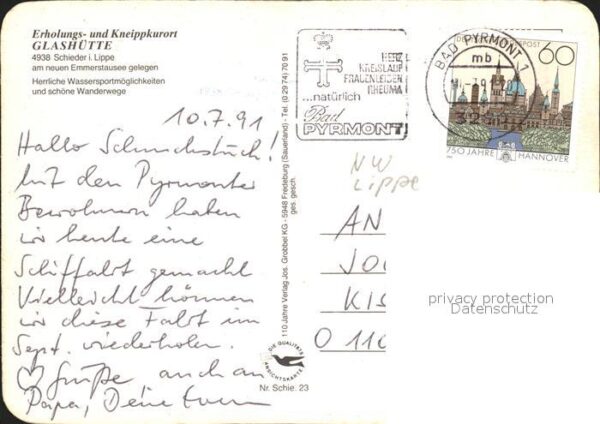 Erholungs- und Kneippkurort
GLASHÜTTE
4938 Schieder i. Lippe
am neuen Emmerstausee gelegen
Herrliche Wassersportmöglichkeiten
und schöne Wanderwege
10.7.91
Hallo Schmuckstück!
Mit den Pyrmonter
Bewohnern haben
wir heute eine
Schiffahrt gemacht
Vielleicht können
wir diese Fahrt im
Sept. wiederholen.
♡ Grüße auch an
Papa, Deine
110 Jahre Verlag Jos. Grobbel KG - 5948 Fredeburg (Sauerland) - Tel. (0 29 74) 70 91
ges. gesch.
DIE QUALITÄTS
ANSICHTSKARTE
Nr. Schie. 23
HERZ
KREISLAUF
FRAUENLEIDEN
RHEUMA
...natürlich
Bad
PYRMONT
BAD PYRMONT 1
mb
POST
60
750 JAHRE HANNOVER
NW
Lippe
AN
JO
KIS
O 110
privacy protection
Datenschutz